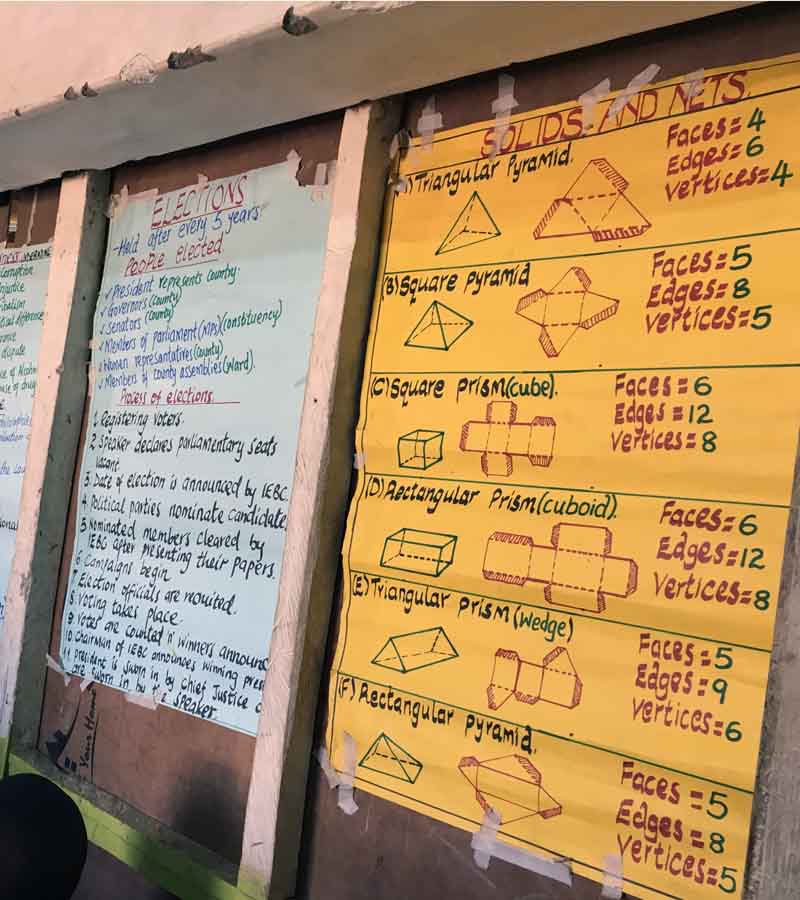 corruption
Injustice
dispute
ELECTIONS
-Held after every 5 years.
PEOPLE Elected
✓President represents country.
✓Governors (county)
✓Senators (county)
✓Members of parliament (MPs) (constituency)
✓Women representatives (county)
✓Members of county assemblies (ward).
Process of elections.
1. Registering voters.
2. Speaker declares parliamentary seats
vacant
3. Date of election is announced by IEBC
4. Political parties nominate candidate
5. Nominated members cleared by
IEBC after presenting their papers.
6. Campaigns begin
7. Election officials are recruited.
8. Voting takes place
9. Votes are counted n' winners announc
10. Chairman of IEBC announces winning pres
11. president is sworn in by Chief Justice
are sworn in by the speaker.
Your Hand
SOLIDS AND NETS
(A) Triangular Pyramid.
Faces=4
Edges=6
Vertices=4
(B) Square pyramid
Faces=5
Edges=8
Vertices=5
(C) Square prism (cube).
Faces=6
Edges=12
Vertices=8
(D) Rectangular Prism (cuboid).
Faces=6
Edges=12
Vertices=8
(E) Triangular prism (wedge)
Faces=5
Edges=9
Vertices=6
(F) Rectangular pyramid.
Faces=5
Edges=8
Vertices=5